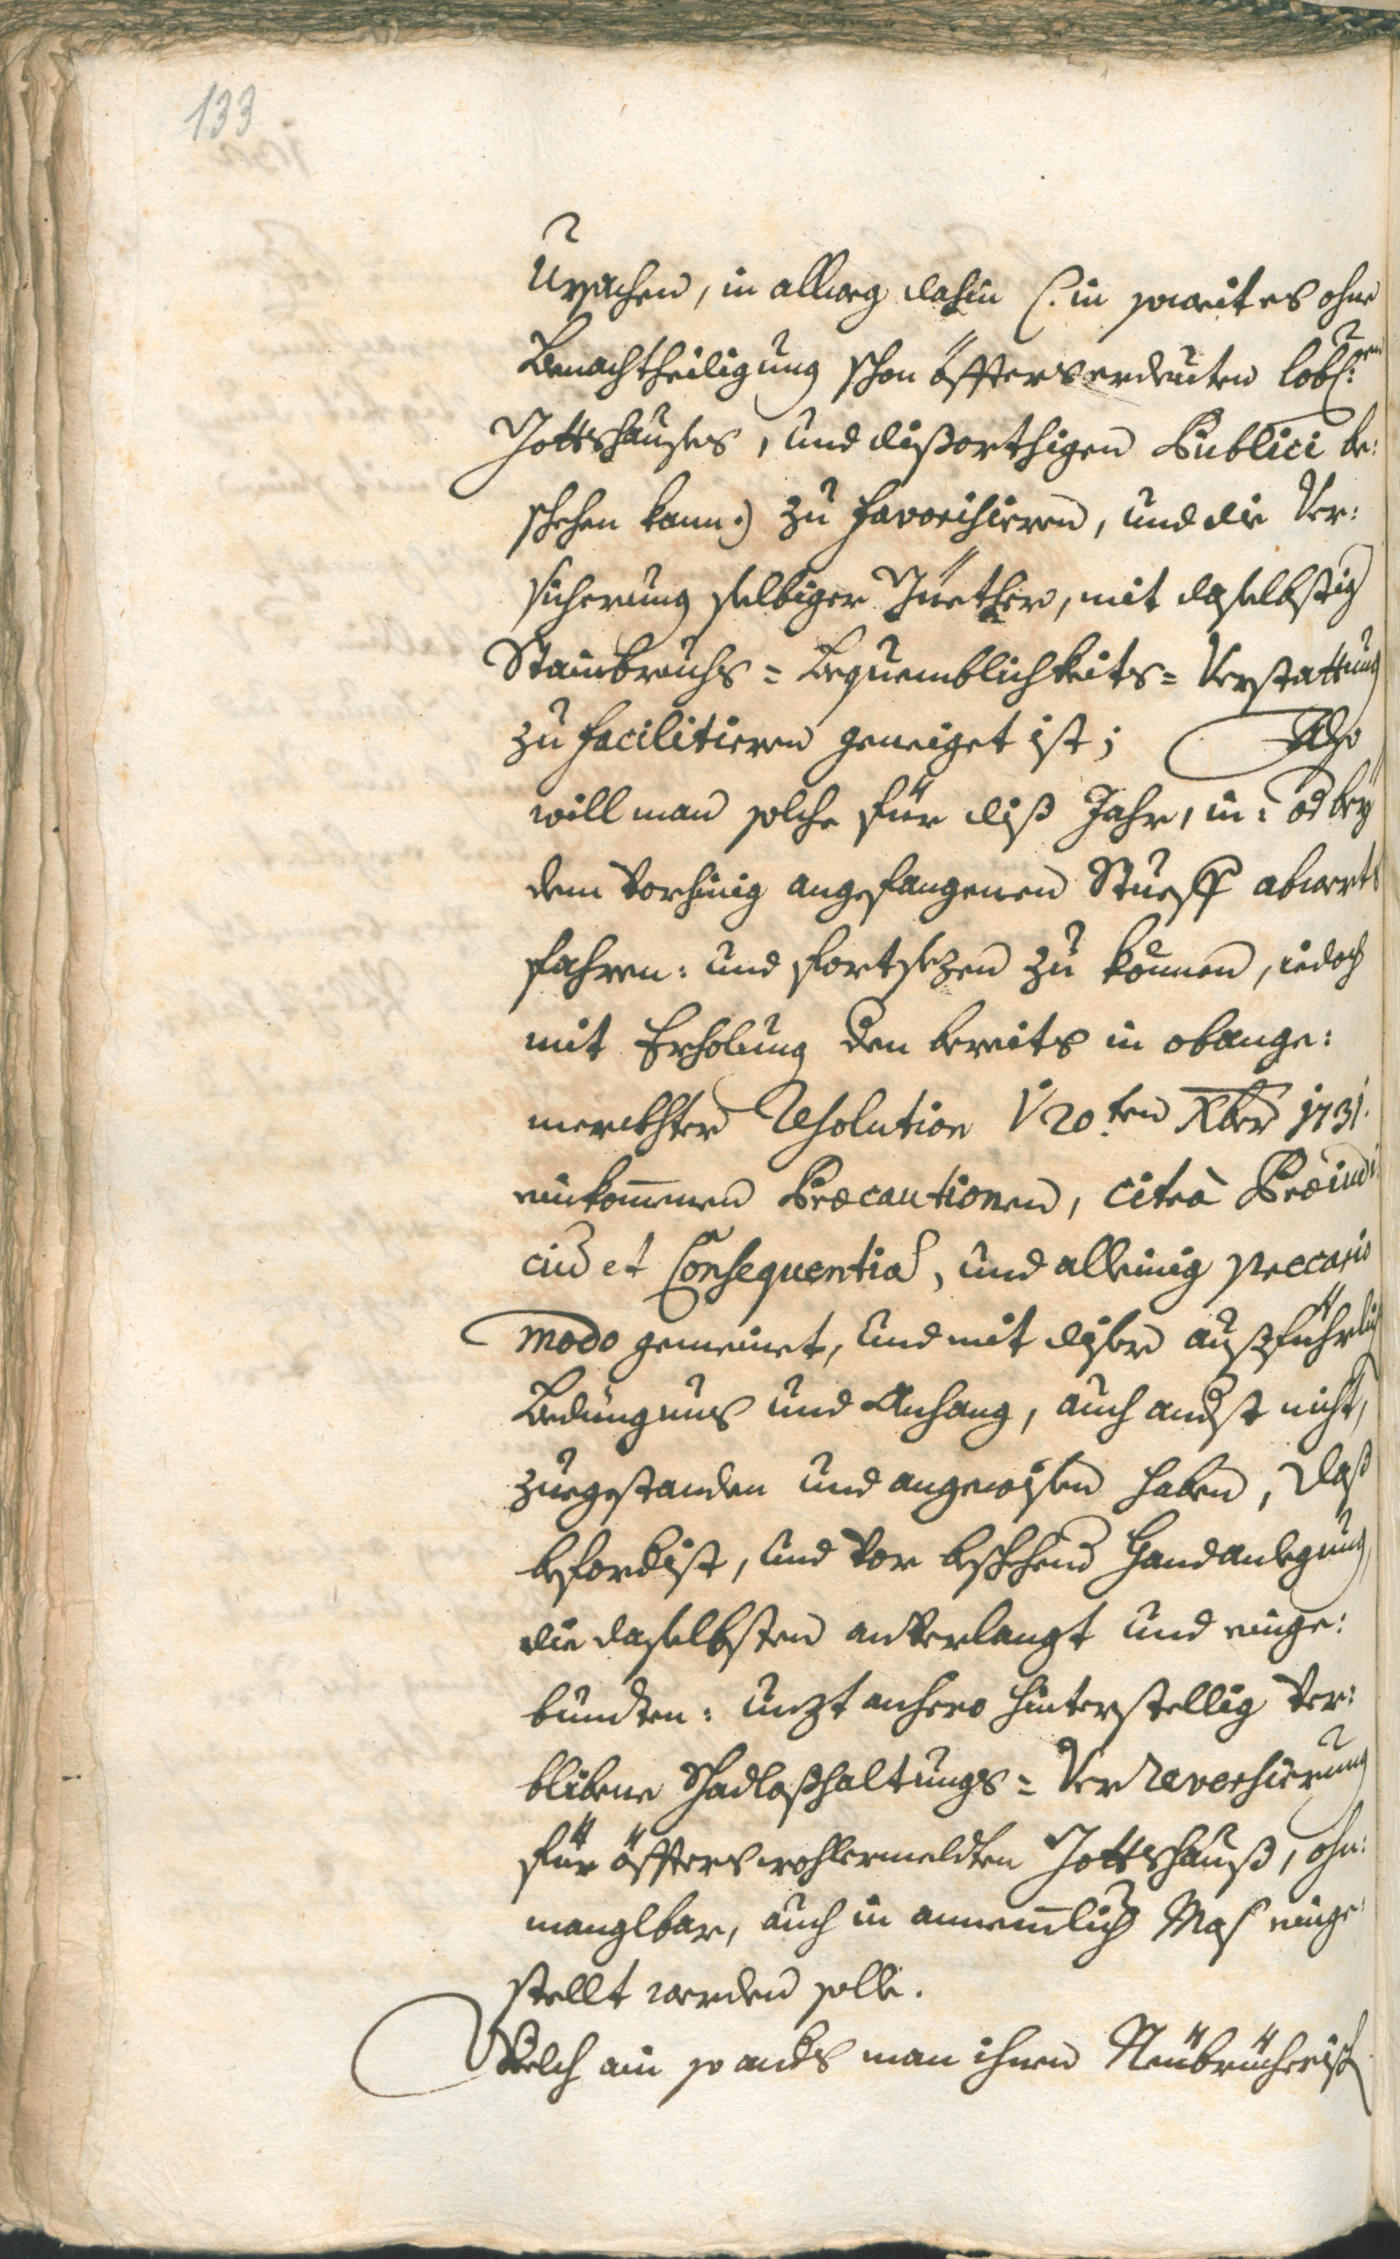 133
Ursachen, in allweg dahin (: in soweit es ohne
Benachtheiligung schon öffters erdeuten lobl:en
Gottshauses, und dißorthigen Publici be:
schehen kann :) zu favorisieren, und die Ver:
sicherung selbiger Güether, mit daselbstig
Stainbruchs = Bequemblichkeits = Verstattung
zu facilitieren geneiget ist; Also
will man solche für diß Jahr, in: od bey
dem vorhinig angefangenen Stueff abwerts
fahren: und fortsezen zu können, iedoch
mit Erholung den bereits in obange:
merckhter Resolution 20.ten Xber 1731.
einkom̅enen Præcautionen, citrà Præiudi:
ciu̅ et Consequentia̅, und alleinig precario
modo gemeinet, und mit diser außführlich
Bedüngnus und Anhang, auch andst nicht,
zuegestanden und angewisen haben, daß
befordist, und vor beschehend Handanlegung,
die daselbsten anverlangt und einge:
bundten: unzt anhero hinterstellig ver:
blibene Schadloßhaltungs = Verreversierung
für öffters wohlermeldten Gottshauß, ohn:
manglbar, auch in annem̅lich Mas einge:
stellt werden solle.
Welch ain so anders man ihnen Neübrücherisch